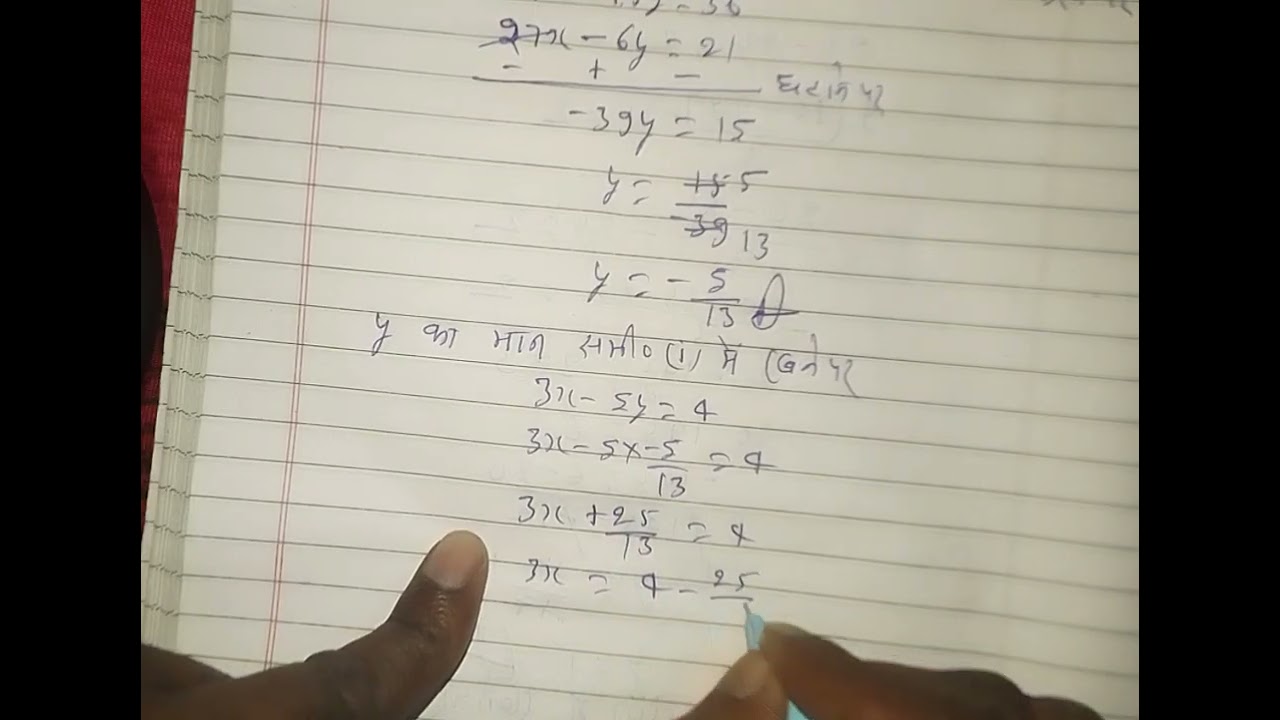 = 36
27x - 6y = 21
- + -
घटाने पर
-39y = 15
y = 15 5
-39 13
y = - 5/13
y का मान समी० (1) में रखने पर
3x - 5y = 4
3x - 5 × -5/13 = 4
3x + 25/13 = 4
3x = 4 - 25